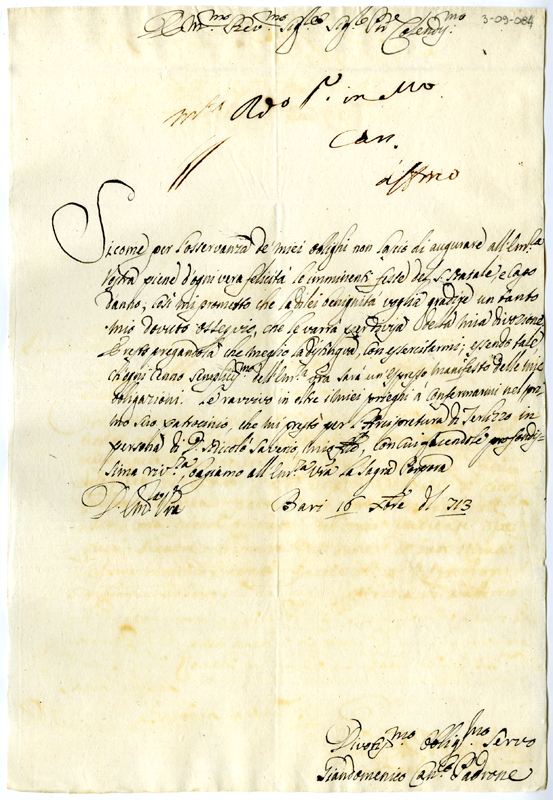 3-09-084
Em.mo Rev.mo Sig.re Sig.re P.rone Colend.mo
Rdo P. in
Can.
Sicome per l'osservanza de miei oblighi non lascio di augurare all'Em.za
Vostra piene d'ogni vera felicità le imminenti feste del S. Natale, e Capo
d'anno; così mi prometto che la di lei benignità voglia gradire un tanto
mio dovuto ossequio, che le varrà per della mia divozione,
Resto pregandola che meglio la distingua, con esercitarmi; essendo tale
ch'ogni cenno dell'Em.za Vra sarà un espresso manifesto delle mie
obligazioni. Le ravvivo in oltre i miei prieghi à confermarmi nel pri-
mo suo patrocinio, che mi prestò per l'Arcipretura di Terlizzo in
persona di D. Nicolò Saverio mio con che facendole profondis-
sima riv.za, baciamo all'Em.za Vra la Sagra Porpora
D. Em.za Vra Bari 16 Xbre del 713
Divotiss.mo Oblig.mo Servo
Giandomenico Can.co Padrone